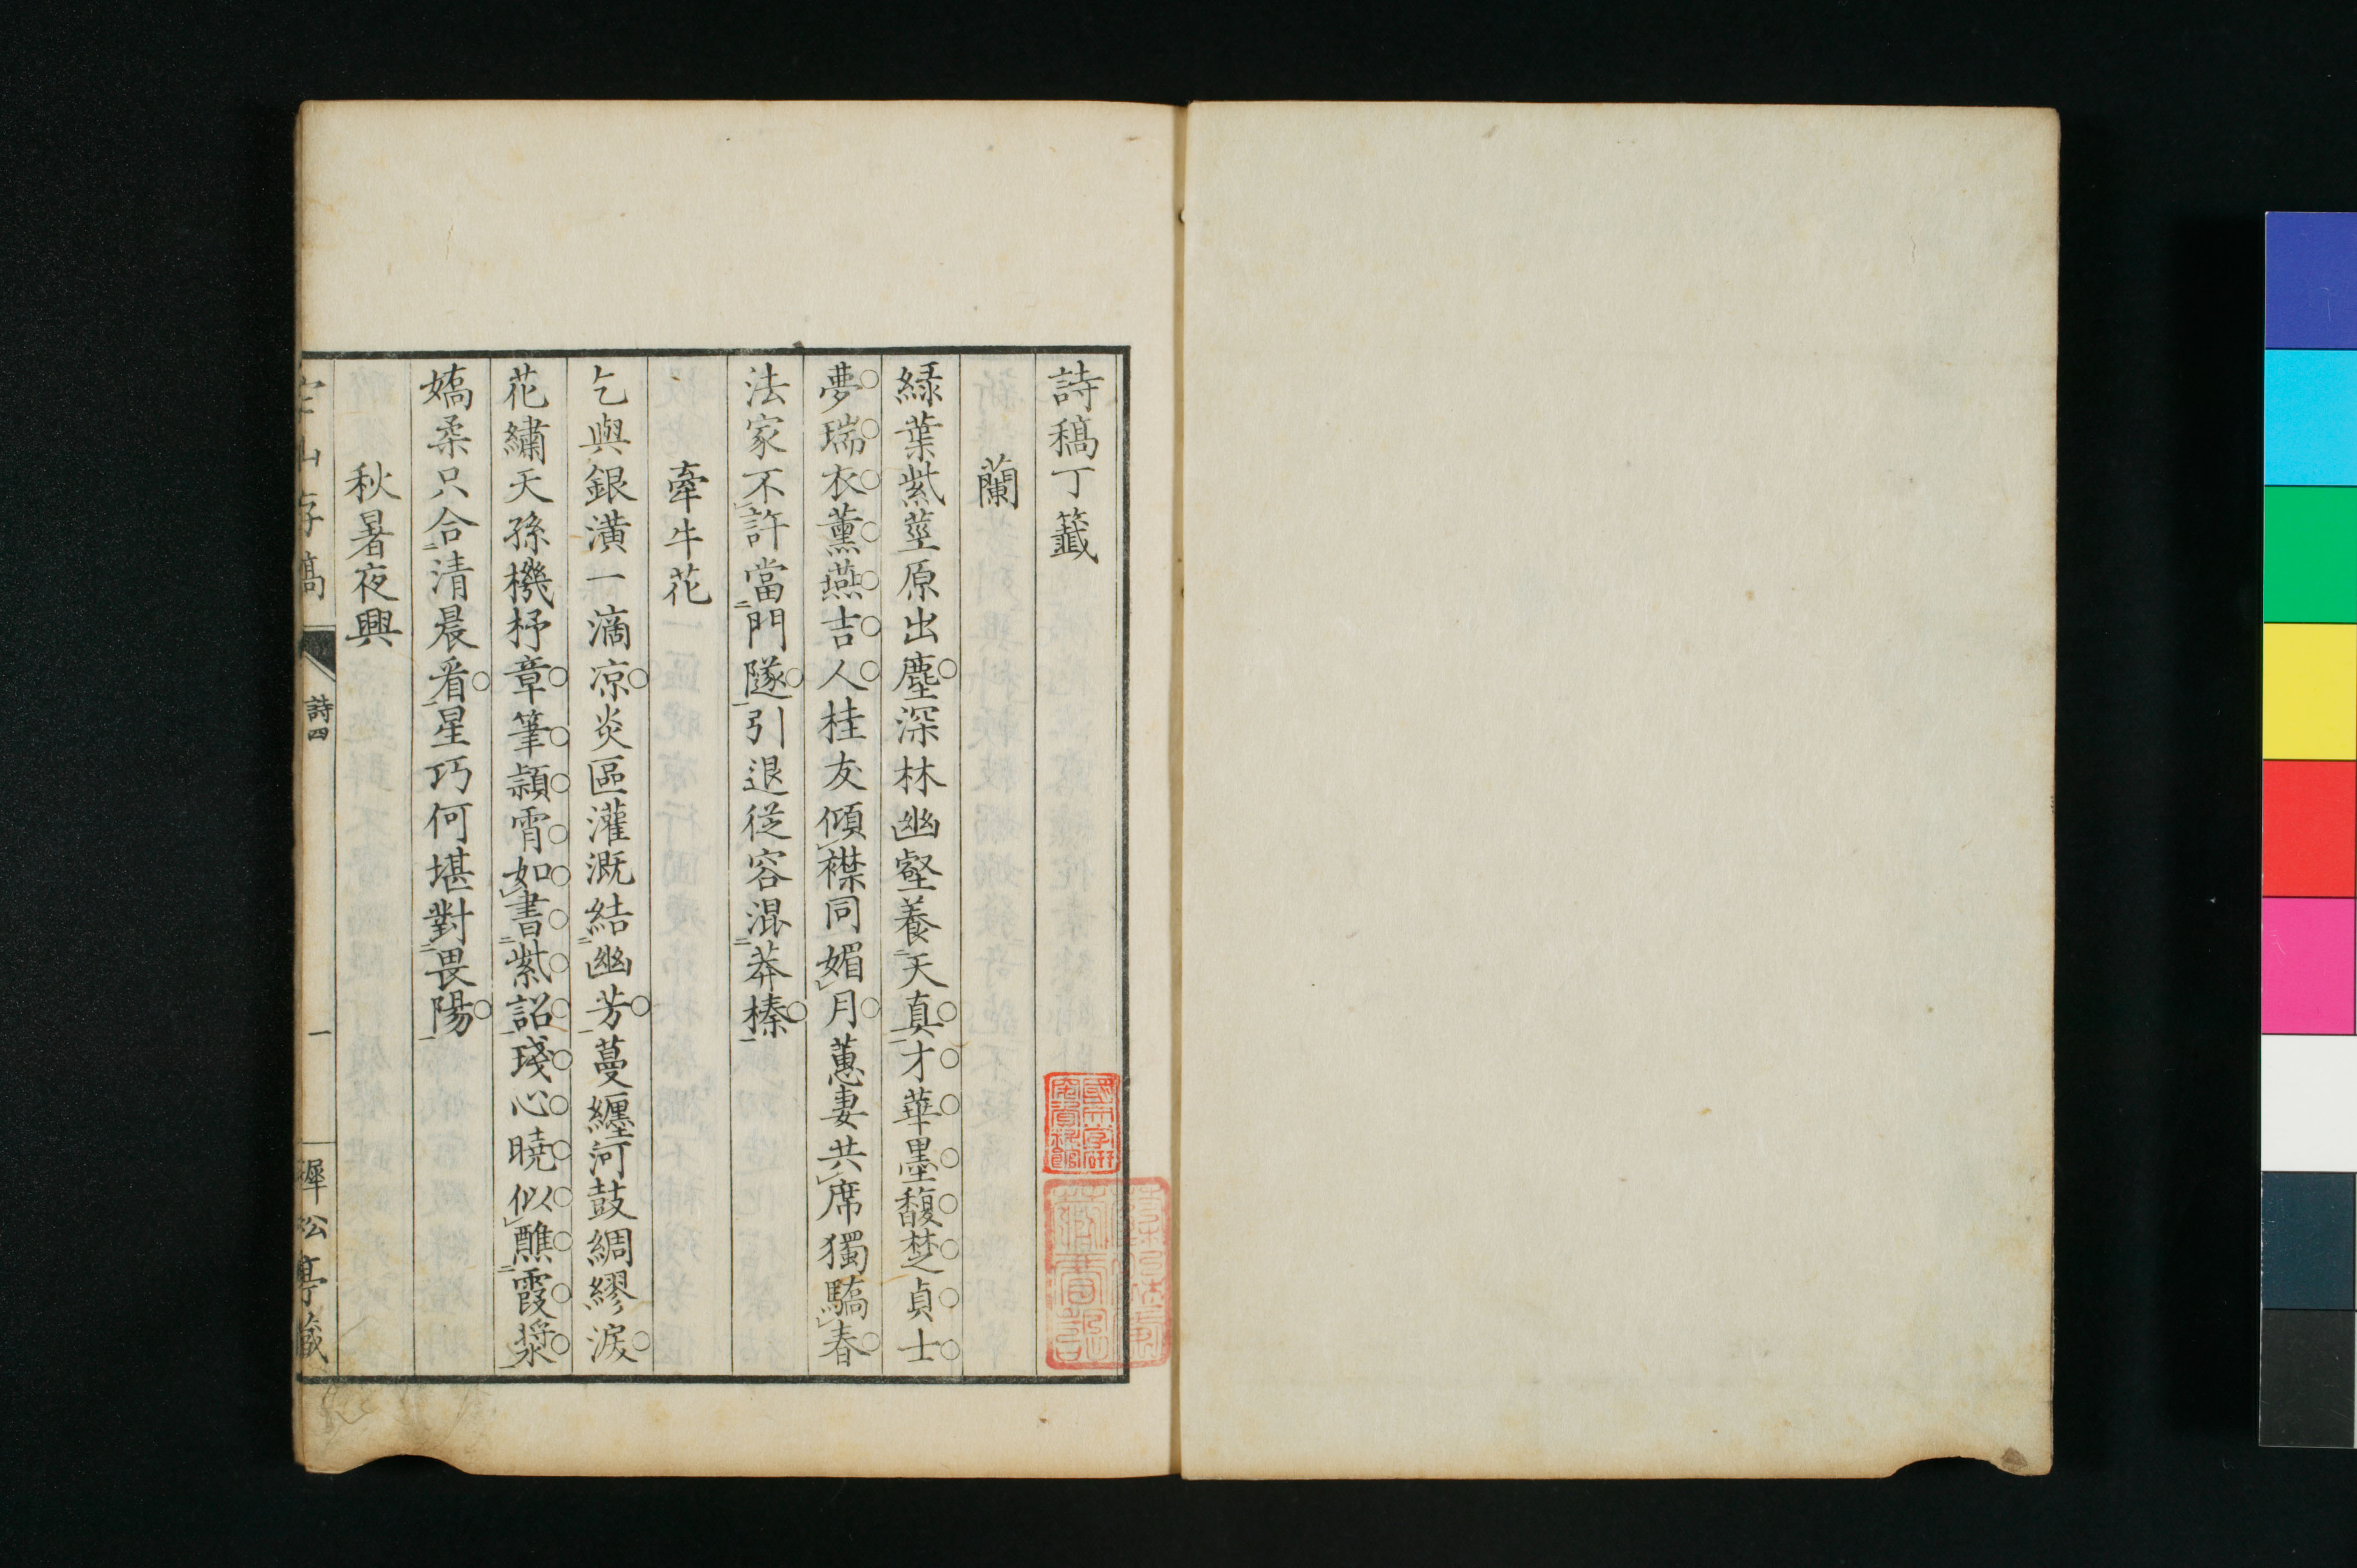 詩稿丁籤
蘭
緑葉紫莖原出塵深林幽壑養天真才華墨馥楚貞士
夢瑞衣薫燕吉人桂友傾襟同媚月蕙妻共席獨驕春
法家不許當門隧引退従容混莽榛
牽牛花
乞與銀潢一滴凉炎區灌漑結幽芳蔓纏河鼓綢繆涙
花繡天孫機杼章筆頴霄如書紫詔琖心曉似醮霞漿
嬌柔只合清晨看星巧何堪對畏陽
秋暑夜興
山存稿
詩四
一
松亭藏
國文学研
究資料館